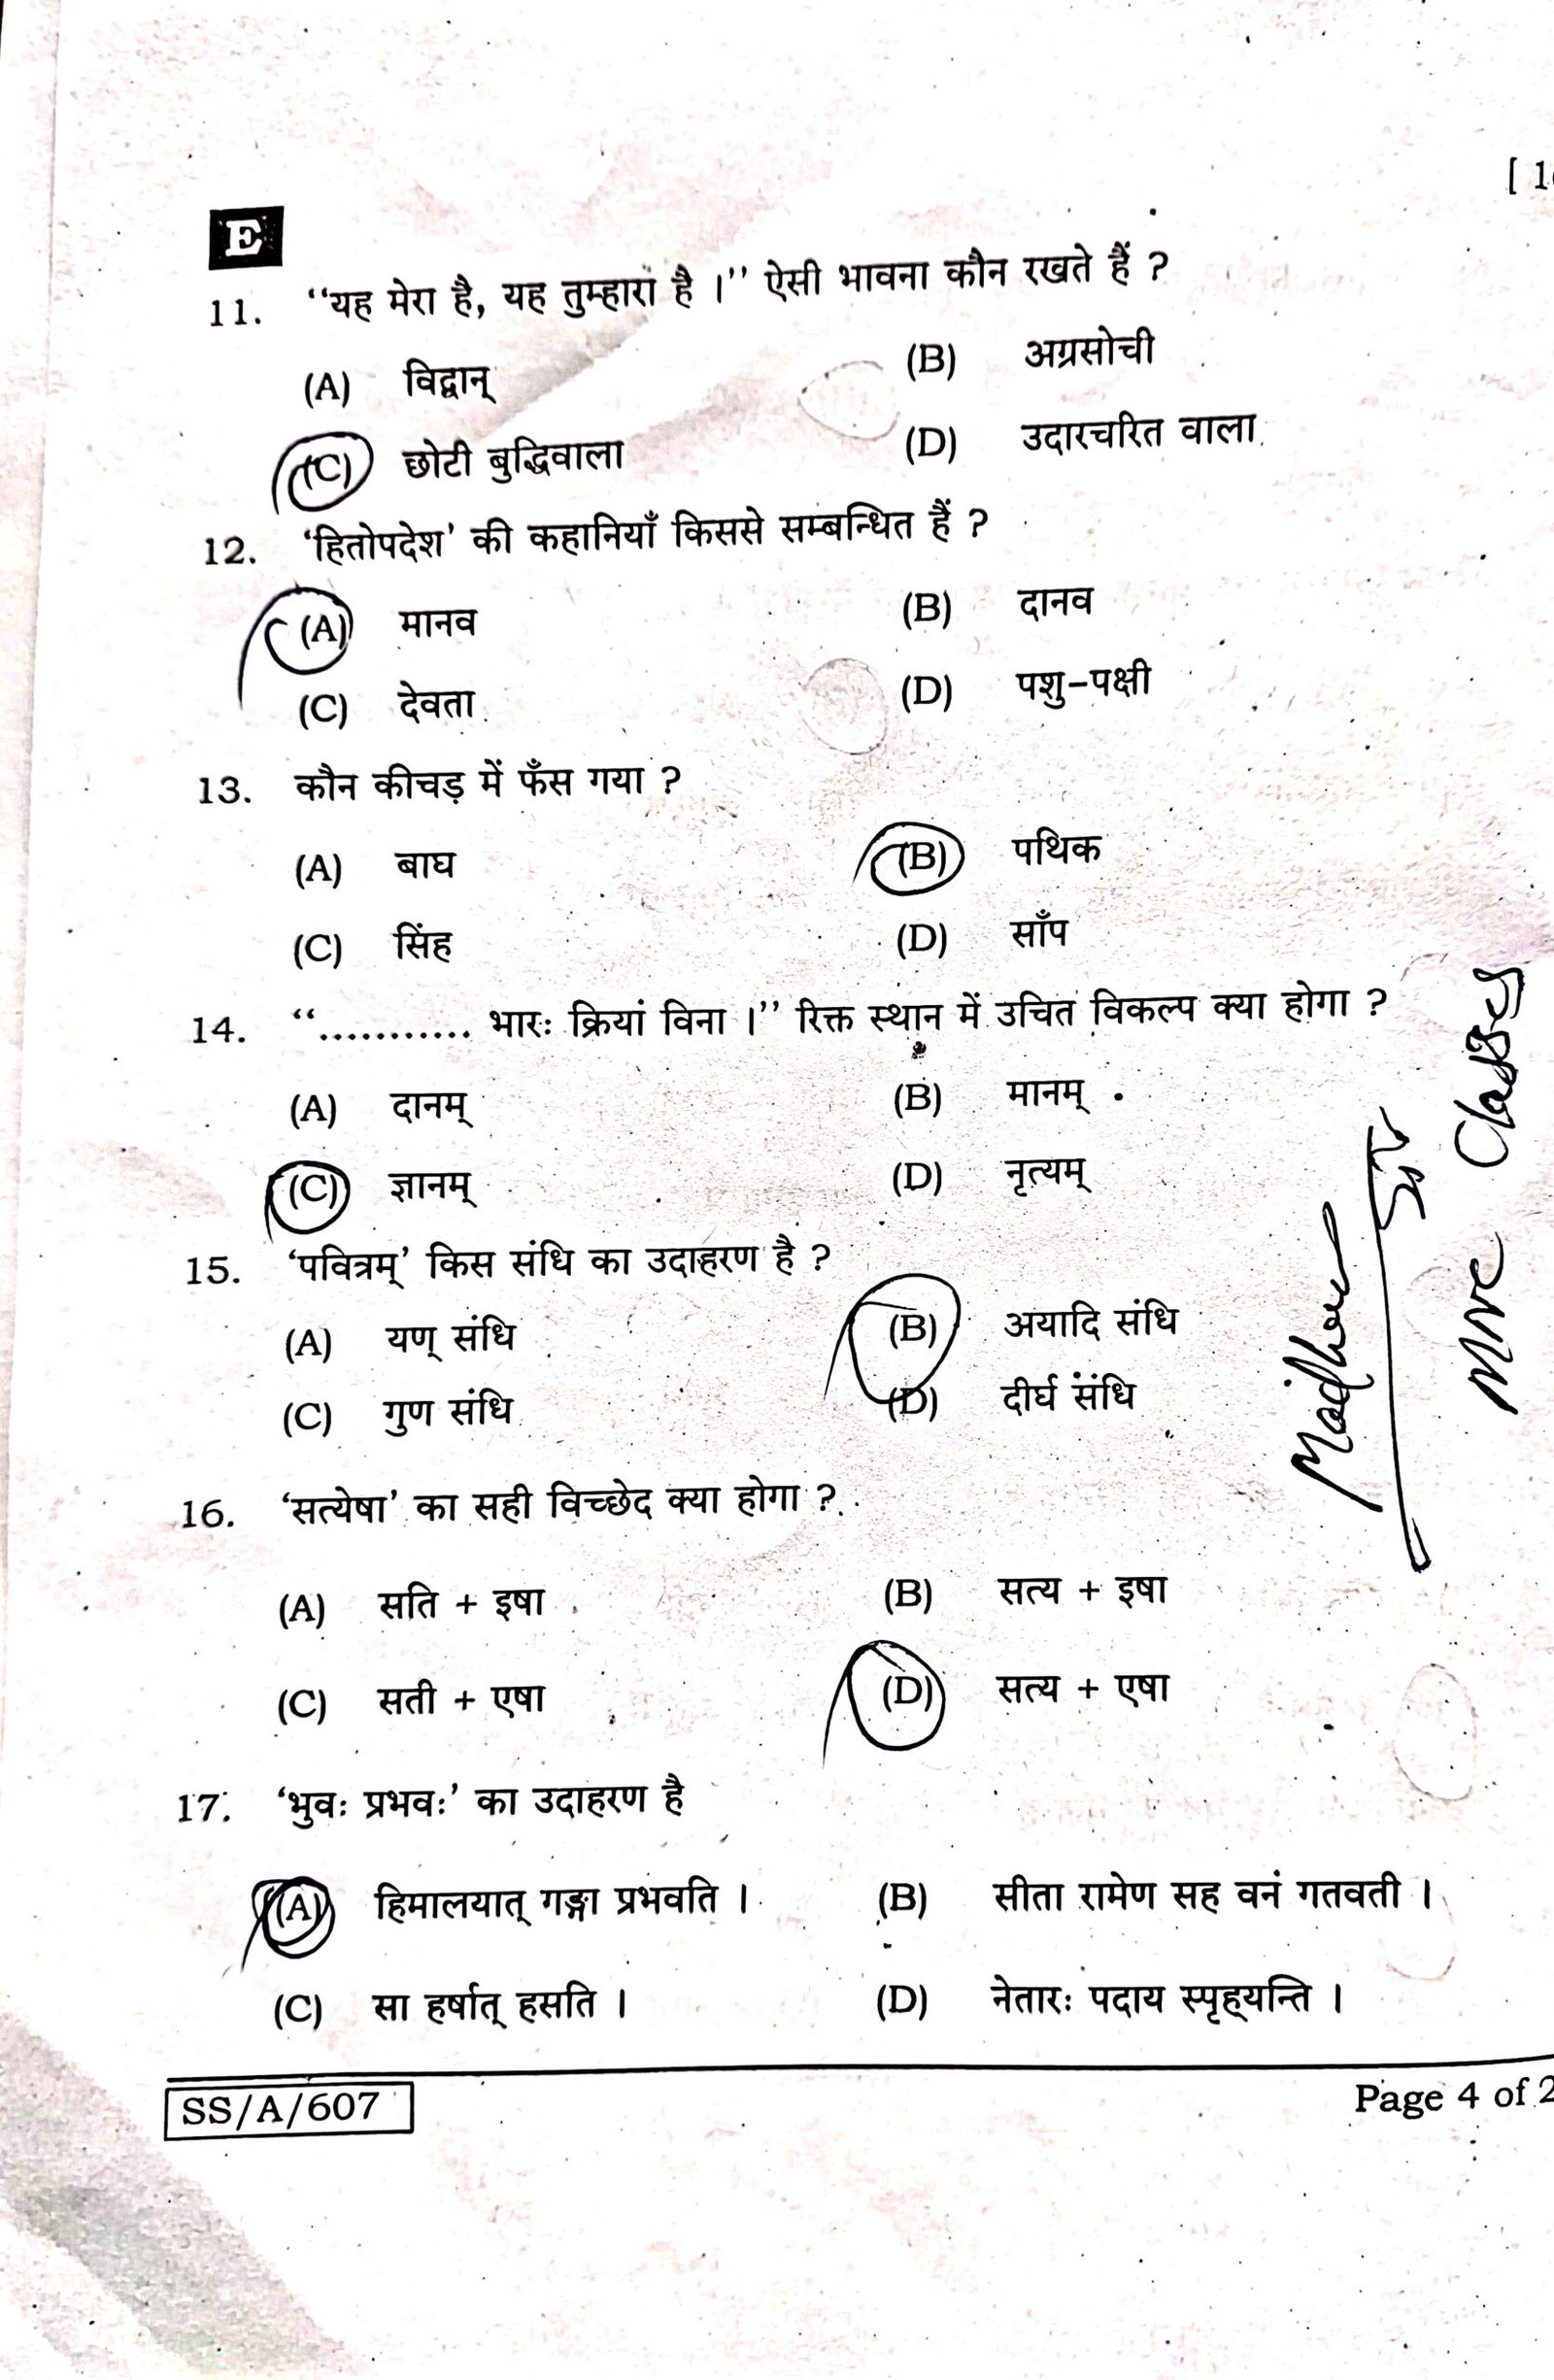 [ 1
E
11. ‘‘यह मेरा है, यह तुम्हारा है ।’’ ऐसी भावना कौन रखते हैं ?
(A) विद्वान् (B) अग्रसोची
(C) छोटी बुद्धिवाला (D) उदारचरित वाला
12. ‘हितोपदेश’ की कहानियाँ किससे सम्बन्धित हैं ?
(A) मानव (B) दानव
(C) देवता (D) पशु-पक्षी
13. कौन कीचड़ में फँस गया ?
(A) बाघ (B) पथिक
(C) सिंह (D) साँप
14. ‘‘........... भारः क्रियां विना ।’’ रिक्त स्थान में उचित विकल्प क्या होगा ?
(A) दानम् (B) मानम्
(C) ज्ञानम् (D) नृत्यम्
15. ‘पवित्रम्’ किस संधि का उदाहरण है ?
(A) यण् संधि (B) अयादि संधि
(C) गुण संधि (D) दीर्घ संधि
16. ‘सत्येषा’ का सही विच्छेद क्या होगा ?
(A) सति + इषा (B) सत्य + इषा
(C) सती + एषा (D) सत्य + एषा
17. ‘भुवः प्रभवः’ का उदाहरण है
(A) हिमालयात् गङ्गा प्रभवति । (B) सीता रामेण सह वनं गतवती ।
(C) सा हर्षात् हसति । (D) नेतारः पदाय स्पृह्यन्ति ।
SS/A/607 Page 4 of 2
MNC Classes